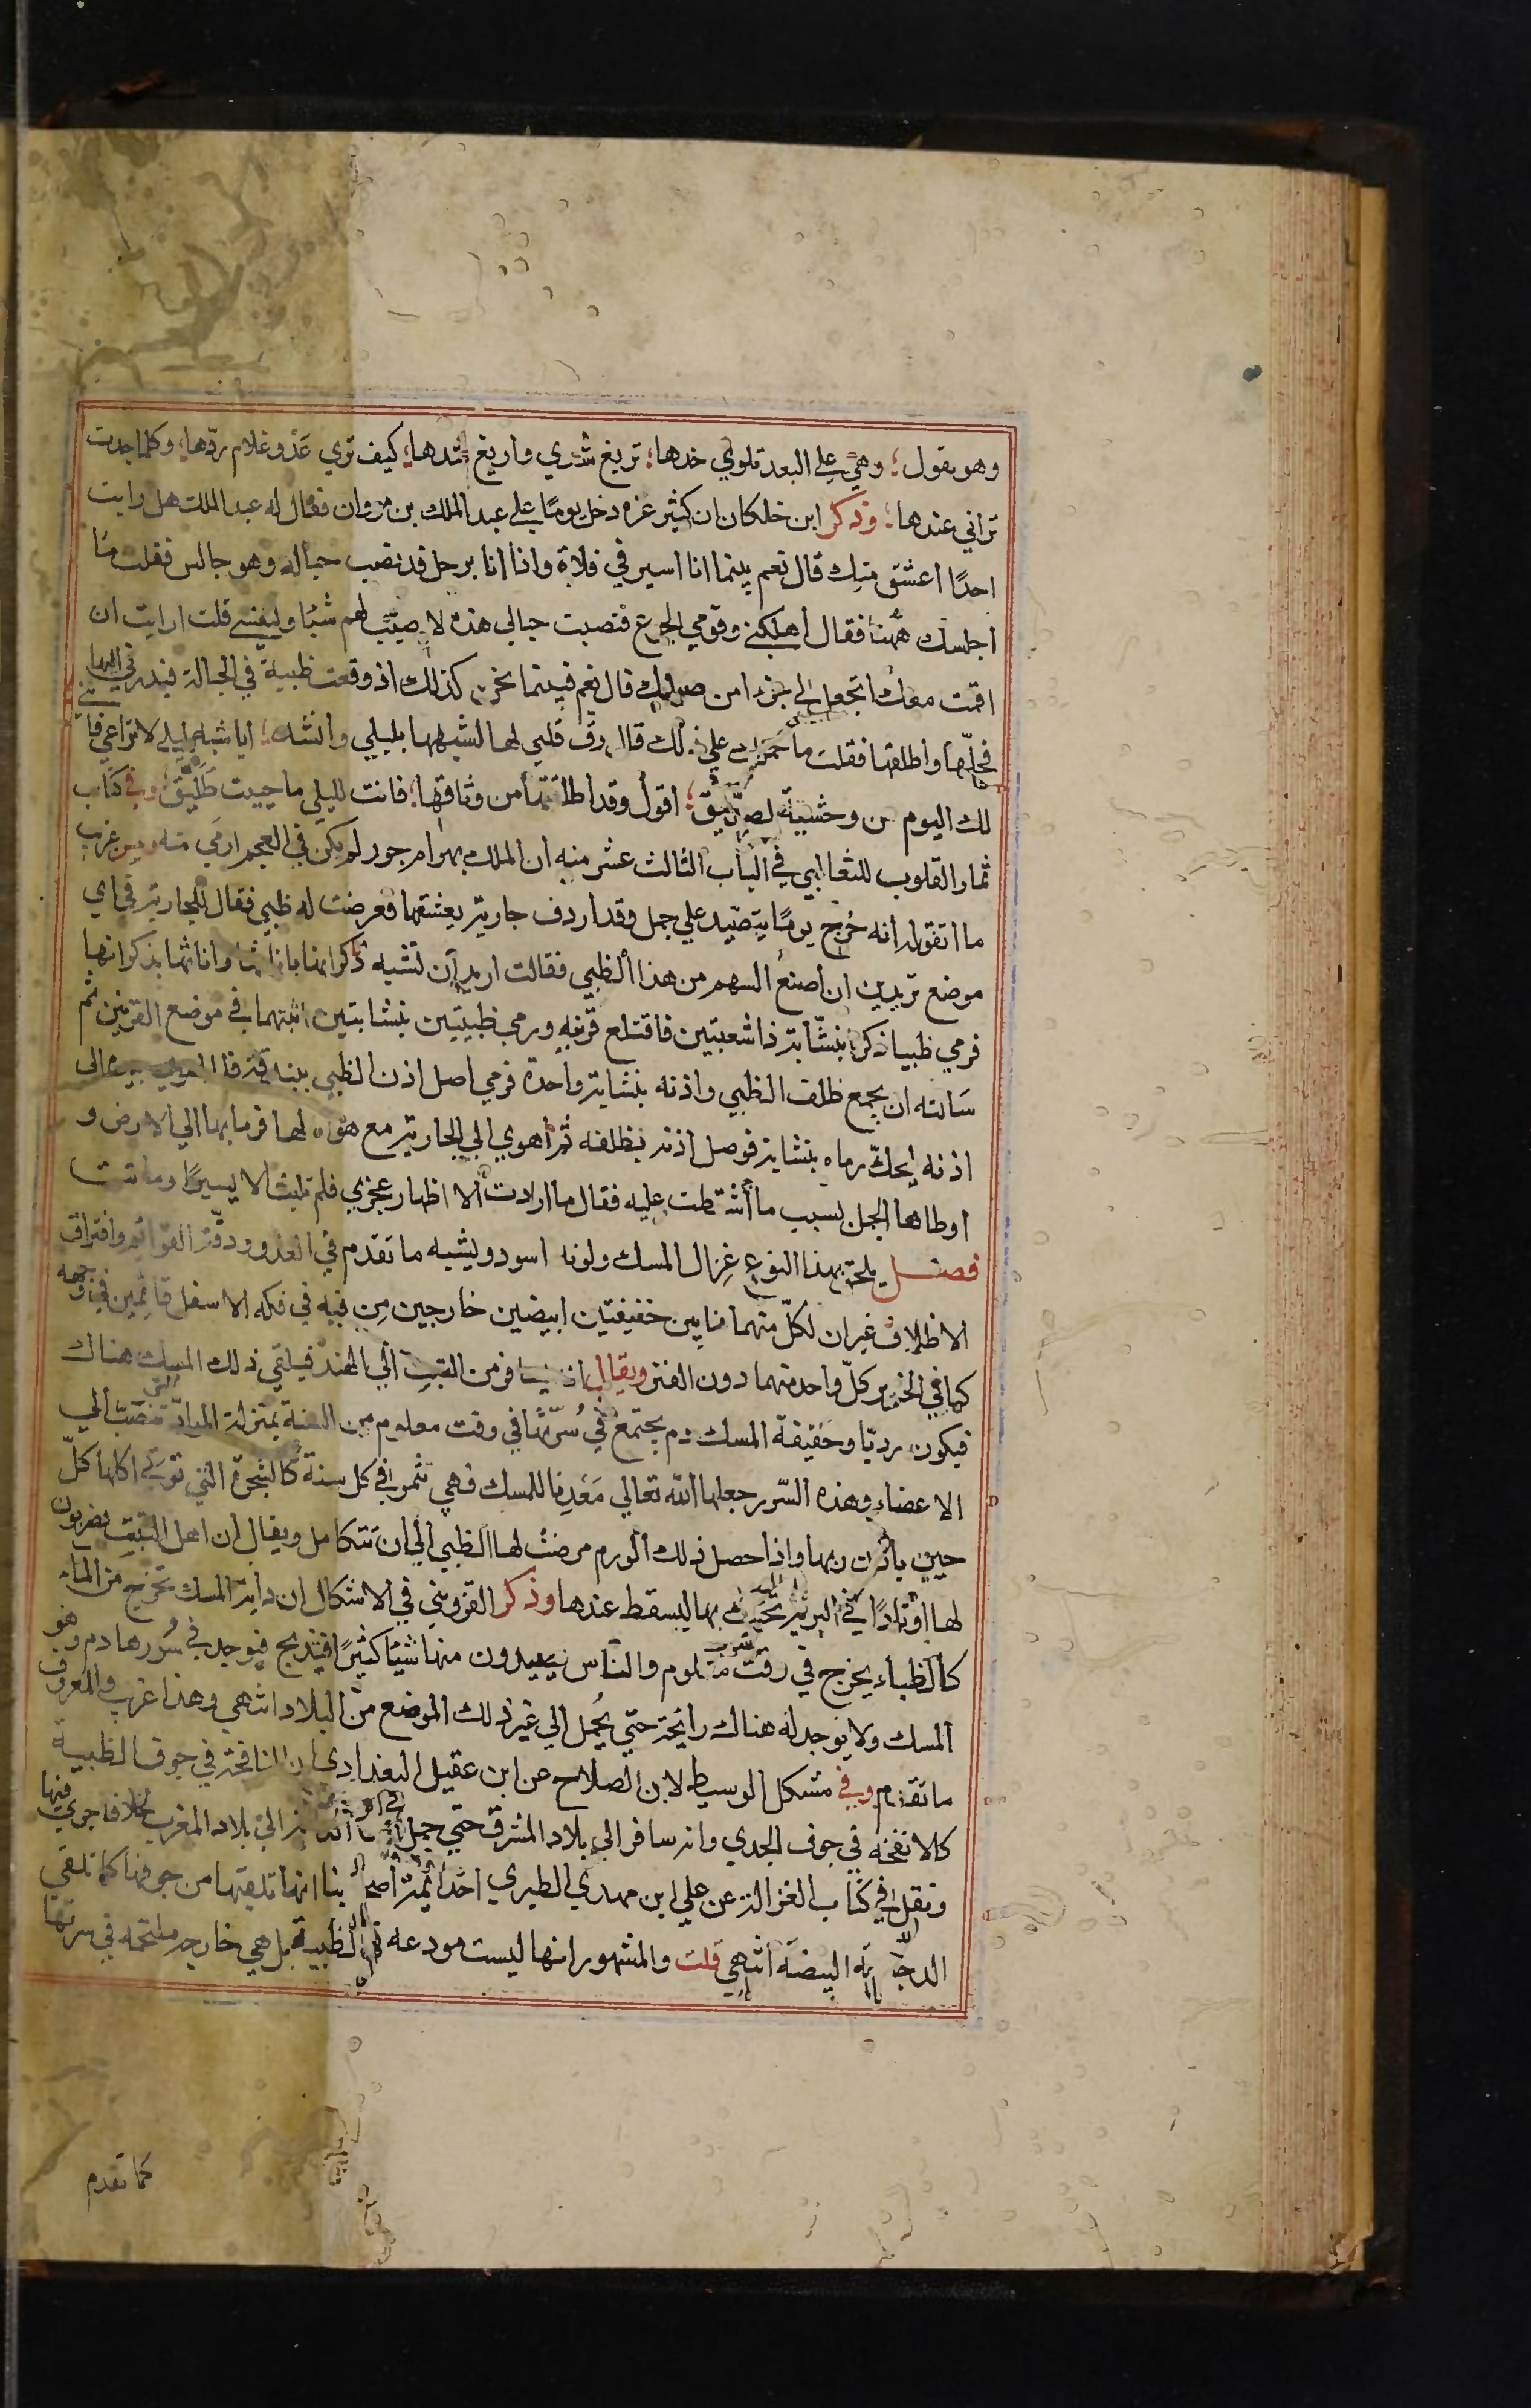 وهو يقول ؛ وهي على البعد تلوي خدها ؛ تريغ شدي واريغ شدها ؛ كيف تري عدو غلام ردها ؛ وكلما جدت
تراني عندها ؛ وذكر ابن خلكان ان كثير عزه دخل يوما على عبد الملك بن مروان فقال له عبد الملك هل رايت
احدًا اعشق منك قال نعم بينما انا اسير في فلاة واذا انا برجل قد نصب حباله وهو جالس فقلت ما
اجلسك ههنا فقال اهلكني وقومي الجوع فنصبت حبالي هذه لاصيب لهم شيا ولنفسي قلت ارايت ان
اقمت معك اتجعل لي جزءا من صيدك قال نعم فبينما نحن كذلك اذ وقعت ظبية في الحبالة فبدرني اليها
فحلها واطلقها فقلت ما حملك علي ذلك قال رق قلبي لها لشبهها بليلي وانشد ؛ ايا شبه ليلى لا تراعي فانني
لك اليوم من وحشية لصديق ؛ اقول وقد اطلقتها من وثاقها ؛ فانت لليلي ما حييت طليق ؛ وفي كتاب
ثمار القلوب للثعالبي في الباب الثالث عشر منه ان الملك بهرام جور لم يكن في العجم ارمي منه ومن غريب
ما اتفق له انه خرج يومًا يتصيد علي جمل وقد اردف جارية يعشقها فعرضت له ظبي فقال للجارية في اي
موضع تريدين ان اصنع السهم من هذا الظبي فقالت اريد ان تشبه ذكرانها باناثها واناثها بذكرانها
فرمي ظبيا ذكرا بنشابة ذا شعبتين فاقتلع قرنيه ورمي ظبيتين بنشابتين اثبتهما في موضع القرنين ثم
سالته ان يجمع ظلف الظبي واذنه بنشابة واحدة فرمي اصل اذن الظبي ببندقة فلما اهوي بيده الى
اذنه ليحك رماه بنشابة فوصل اذنه بظلفه ثم اهوي الي الجارية مع هواه لها فرما بها الي الارض و
اوطاها الجمل بسبب ما اشتطت عليه فقال ما ارادت الا اظهار عجزي فلم تلبث الا يسيرًا وماتت
فصل يلحق بهذا النوع غزال المسك ولونه اسود ويشبه ما تقدم في العدو ودقة القوائم وافتراق
الاظلاف غير ان لكل منهما نابين خفيفتين ابيضين خارجين من فيه في فكه الاسفل قائمين في وجهه
كما في الخنزير كل واحد منهما دون الفتر ويقال انه يسافر من التبت الي الهند فيلقي ذلك المسك هناك
فيكون رديا وحقيقة المسك دم يجتمع في سرتها في وقت معلوم من السنة بمنزلة المواد التي تنصب الي
الاعضاء وهذه السرر جعلها الله تعالي معدنا للمسك فهي تثمر في كل سنة كالشجرة التي توتي اكلها كل
حين باذن ربها واذا حصل ذلك الورم مرضت لها الظبي الي ان تتكامل ويقال ان اهل التبت يضربون
لها اوتادًا في البرية تحتك بها ليسقط عندها وذكر القزويني في الاشكال ان دابة المسك تخرج من الماء
كالظباء يخرج في وقت معلوم والناس يصيدون منها شيئا كثيرًا فيذبح فيوجد في سررها دم وهو
المسك ولا يوجد له هناك رائحة حتي يحمل الي غير ذلك الموضع من البلاد انتهي وهذا غريب والمعروف
ما تقدم وفي مشكل الوسيط لابن الصلاح عن ابن عقيل البغدادي ان النافجة في جوف الظبية
كالانفحة في جوف الجدي وانه سافر الي بلاد المشرق حتي حمل الي بلاد المغرب لخلاف جري فيها
ونقل في كتاب الغزالة عن علي ابن مهدي الطبري احد ائمة اصحابنا انها تلقيها من جوفها كما تلقي
الدجاجة البيضة انتهي قلت والمشهور انها ليست مودعة في الظبية بل هي خارجه ملتحمه في سرتها
كما تقدم